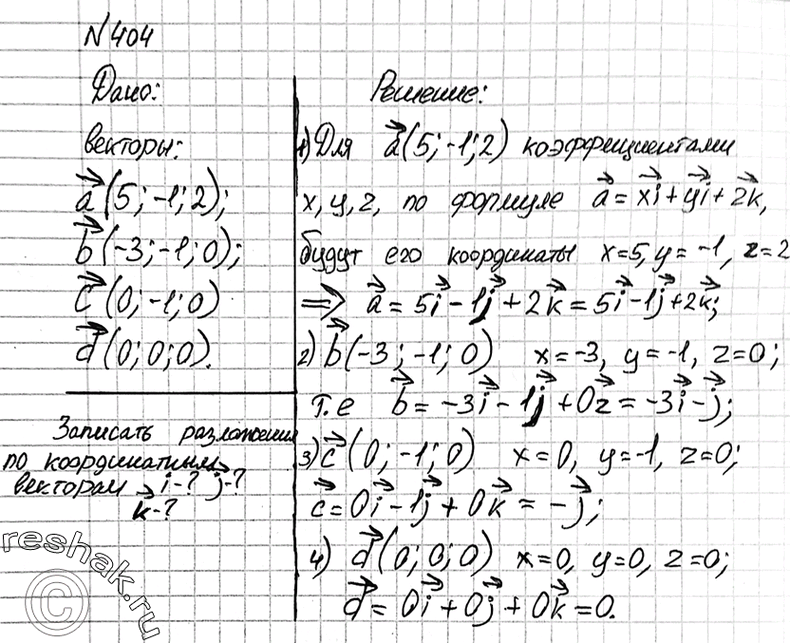 №404
Дано:
векторы:
a⃗(5; -1; 2);
b⃗(-3; -1; 0);
c⃗(0; -1; 0)
d⃗(0; 0; 0).
Записать разложения
по координатным
векторам i⃗-? j⃗-?
k⃗-?
Решение:
1) Для a⃗(5; -1; 2) коэффициентами
x, y, z, по формуле a⃗ = xi⃗ + yi⃗ + zk⃗,
будут его координаты x=5, y= -1, z=2
=> a⃗ = 5i⃗ - 1j⃗ + 2k⃗ = 5i⃗ - 1j⃗ + 2k⃗;
2) b⃗(-3; -1; 0) x=-3, y=-1, z=0;
т.е b⃗ = -3i⃗ - 1j⃗ + 0z⃗ = -3i⃗ - j⃗;
3) c⃗(0; -1; 0) x=0, y=-1, z=0;
c⃗ = 0i⃗ - 1j⃗ + 0k⃗ = -j⃗;
4) d⃗(0; 0; 0) x=0, y=0, z=0;
d⃗ = 0i⃗ + 0j⃗ + 0k⃗ = 0.
reshak.ru
©